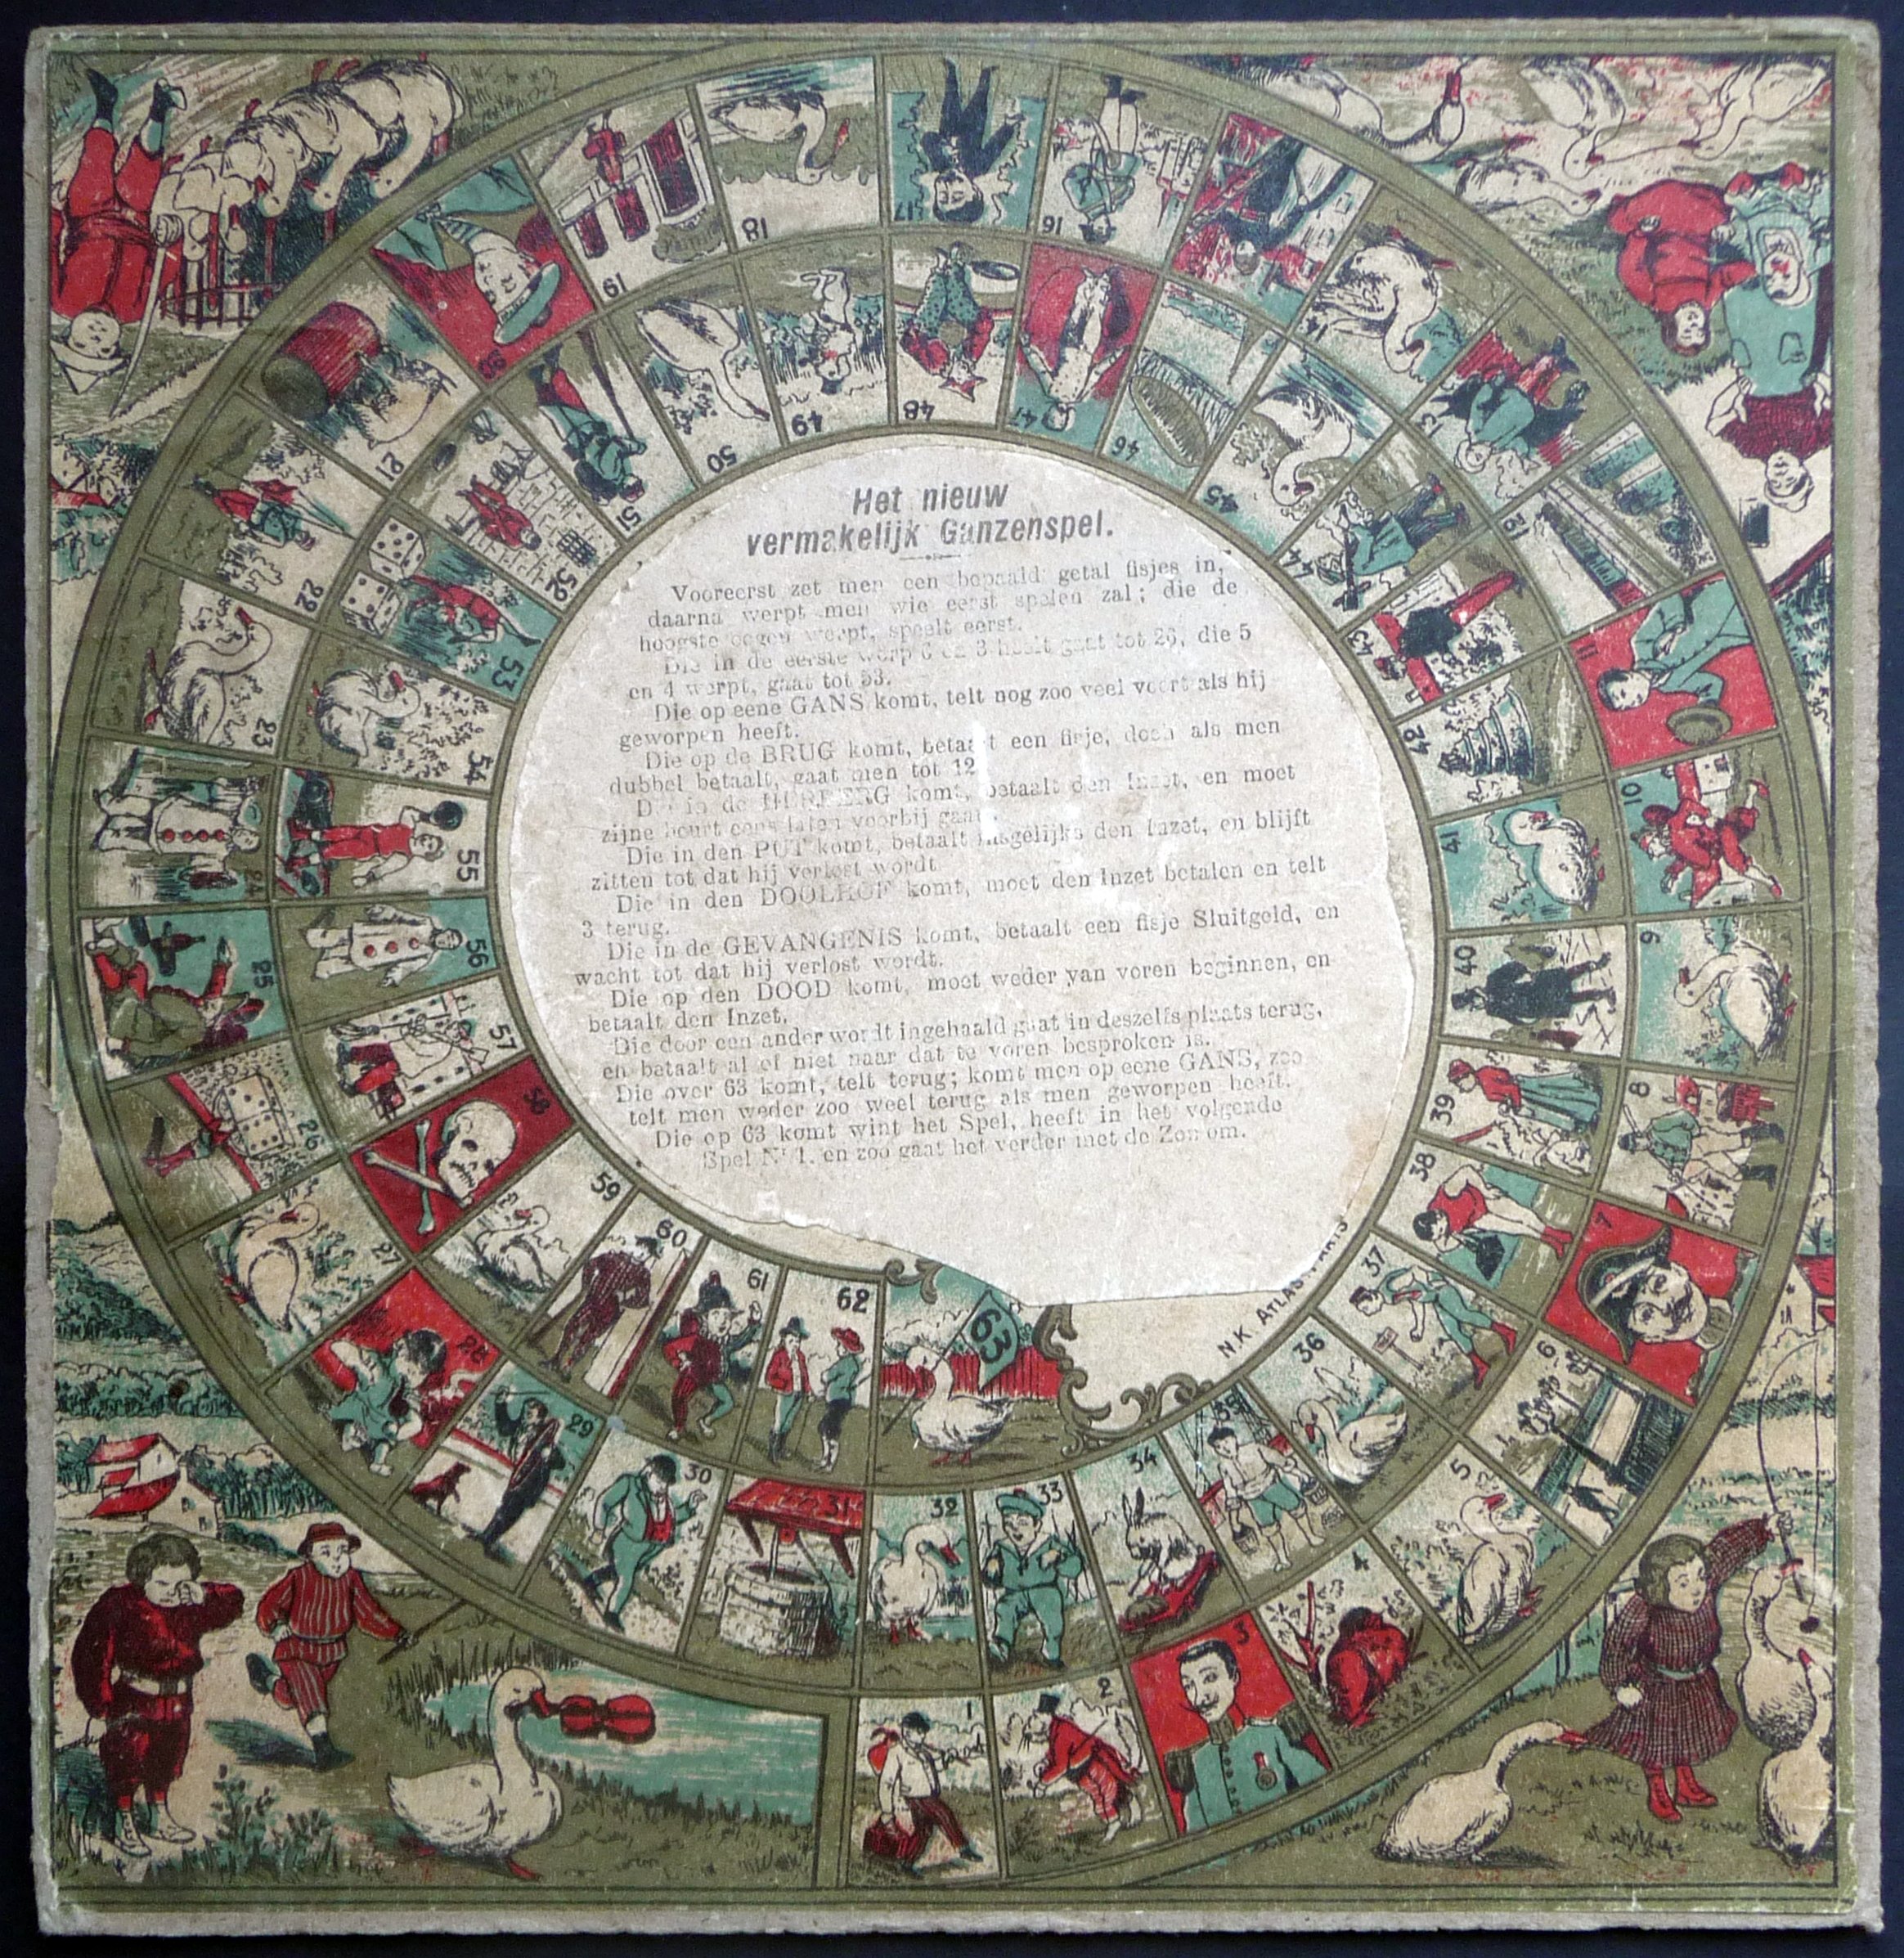 Het nieuw
vermakelijk Ganzenspel.
Vooreerst zet men een bepaald getal fisjes in,
daarna werpt men wie eerst spelen zal; die de
hoogste oogen werpt, speelt eerst.
Die in de eerste worp 6 en 3 heeft gaat tot 26, die 5
en 4 werpt, gaat tot 53.
Die op eene GANS komt, telt nog zoo veel voort als hij
geworpen heeft.
Die op de BRUG komt, betaalt een fisje, doch als men
dubbel betaalt, gaat men tot 12
Die in de HERBERG komt, betaalt den Inzet, en moet
zijne beurt eens laten voorbij gaan.
Die in den PUT komt, betaalt insgelijks den Inzet, en blijft
zitten tot dat hij verlost wordt
Die in den DOOLHOF komt, moet den Inzet betalen en telt
3 terug.
Die in de GEVANGENIS komt, betaalt een fisje Sluitgeld, en
wacht tot dat hij verlost wordt.
Die op den DOOD komt, moet weder van voren beginnen, en
betaalt den Inzet.
Die door een ander wordt ingehaald gaat in deszelfs plaats terug,
en betaalt al of niet naar dat te voren besproken is.
Die over 63 komt, telt terug; komt men op eene GANS, zoo
telt men weder zoo veel terug als men geworpen heeft.
Die op 63 komt wint het Spel, heeft in het volgende
Spel No 1. en zoo gaat het verder met de Zon om.
N.K ATLAS
1
2
3
4
5
6
7
8
9
10
11
12
13
16
17
18
19
20
21
22
23
24
25
26
27
28
29
30
31
32
33
34
35
36
37
38
39
40
41
42
43
44
45
46
47
48
49
50
51
52
53
54
55
56
57
58
59
60
61
62
63